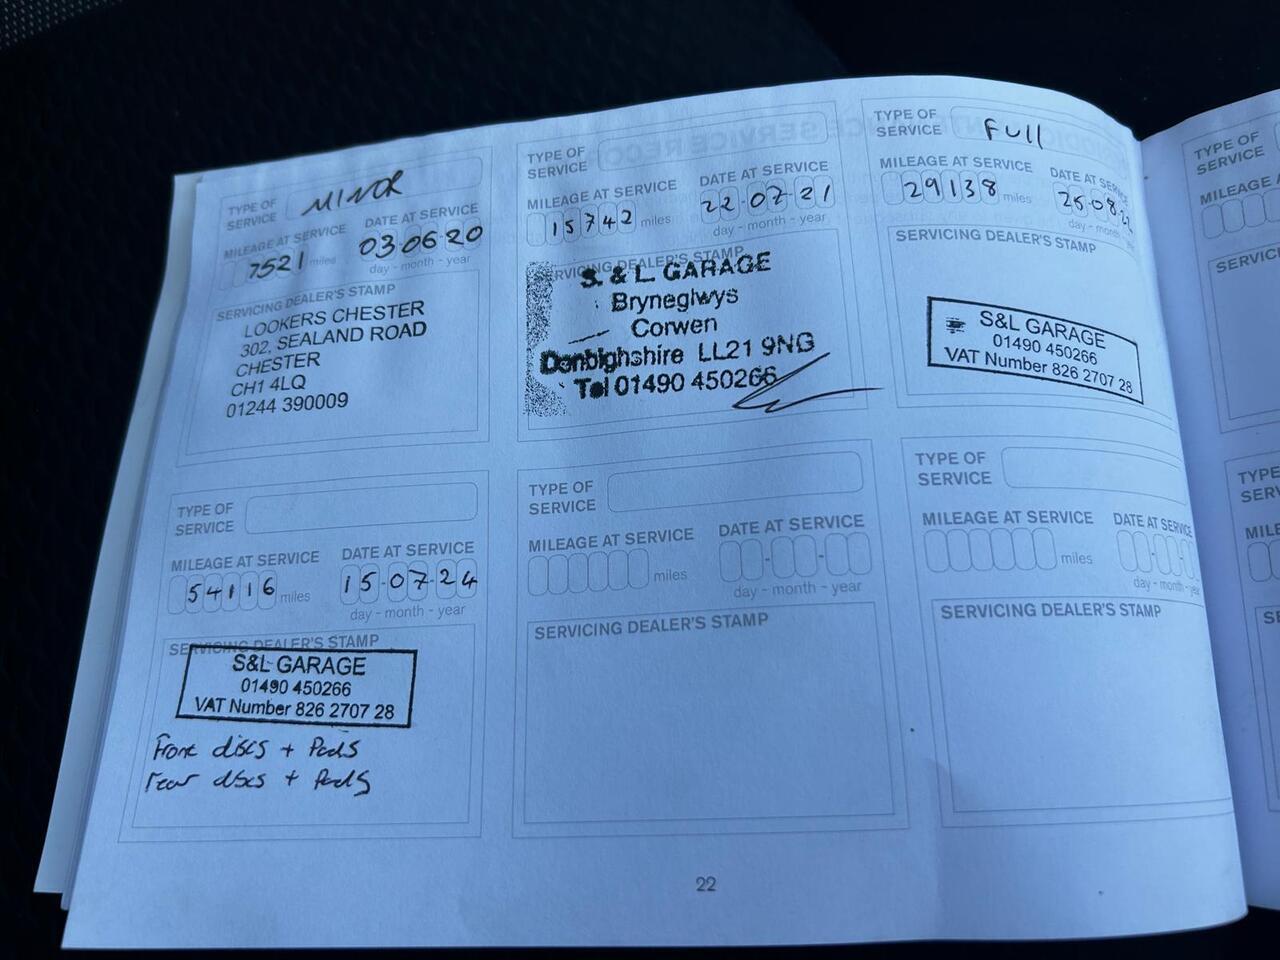 TYPE OF
SERVICE
MINOR
MILEAGE AT SERVICE
DATE AT SERVICE
7521 miles
03-06-20
day - month - year
SERVICING DEALER'S STAMP
LOOKERS CHESTER
302, SEALAND ROAD
CHESTER
CH1 4LQ
01244 390009
TYPE OF
SERVICE
MILEAGE AT SERVICE
DATE AT SERVICE
15742 miles
22-07-21
day - month - year
SERVICING DEALER'S STAMP
S. & L. GARAGE
Bryneglwys
Corwen
Denbighshire LL21 9NG
Tel 01490 450266
TYPE OF
SERVICE
FULL
MILEAGE AT SERVICE
DATE AT SERVICE
29138 miles
day - month - year
SERVICING DEALER'S STAMP
S&L GARAGE
01490 450266
VAT Number 826 2707 28
TYPE OF
SERVICE
MILEAGE AT SERVICE
DATE AT SERVICE
54116 miles
15-07-24
day - month - year
SERVICING DEALER'S STAMP
S&L GARAGE
01490 450266
VAT Number 826 2707 28
Front discs + Pads
rear discs + Pads
TYPE OF
SERVICE
MILEAGE AT SERVICE
DATE AT SERVICE
miles
day - month - year
SERVICING DEALER'S STAMP
TYPE OF
SERVICE
MILEAGE AT SERVICE
DATE AT SERVICE
miles
day - month - year
SERVICING DEALER'S STAMP
22
TYPE OF
SERVICE
MILEAGE